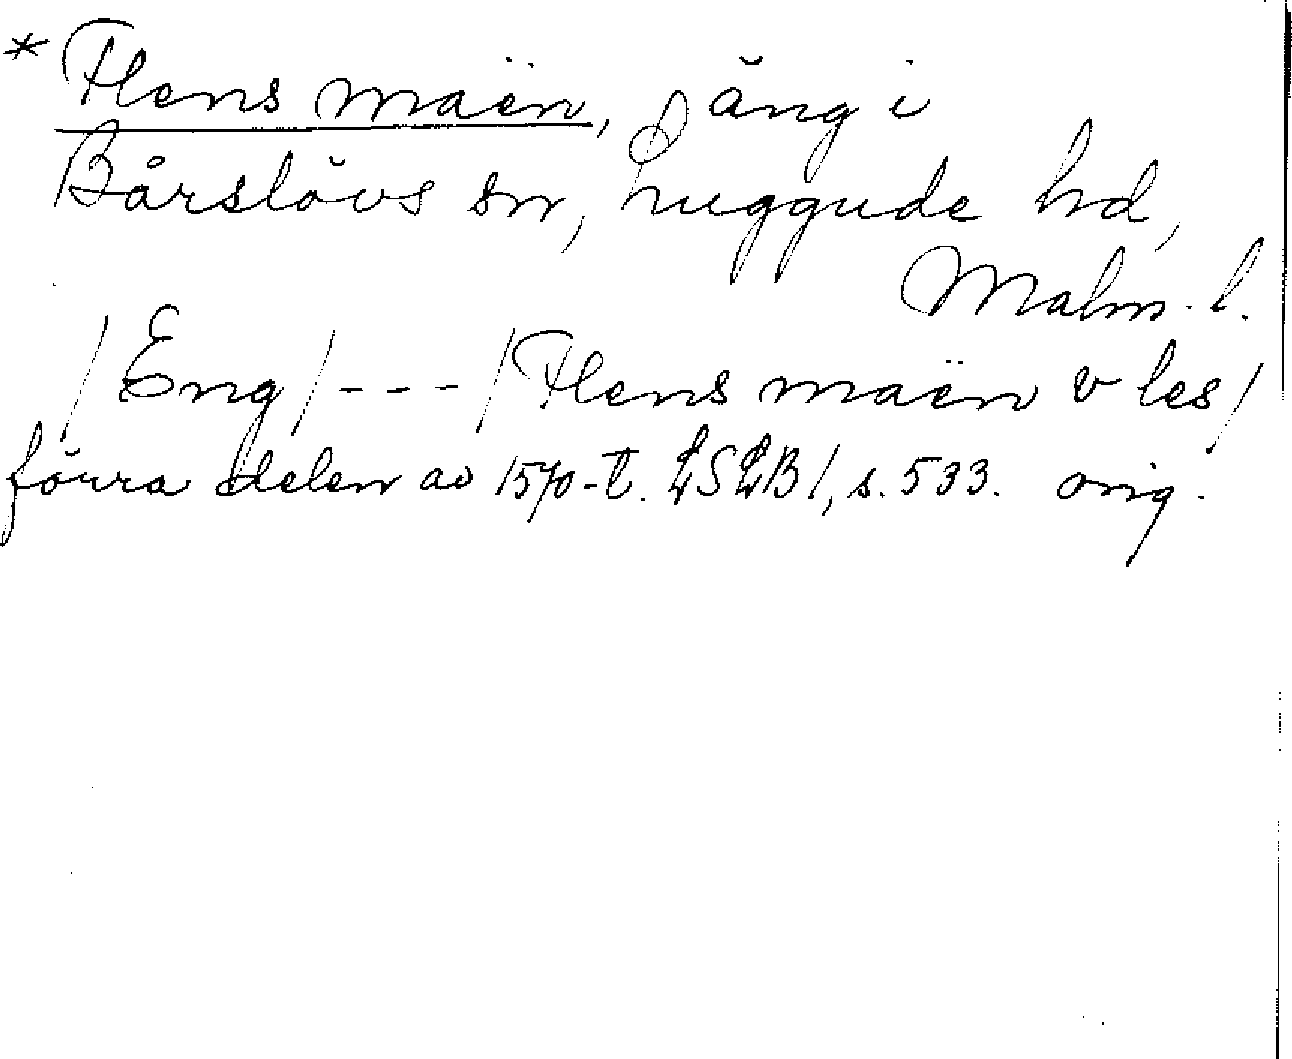 * Flens maën, äng i
Bårslövs sn, Luggude hd,
Malm. l.
/Eng/ - - - /Flens maën v les/
förra delen av 1570-t. LSLB 1, s. 533. orig.